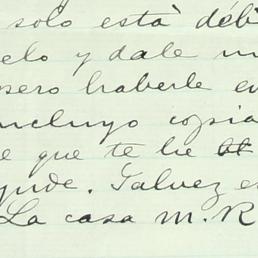 solo está débi
elo y dale un
pero haberle en
ncluyo copia
e que te he
yude. Galvez es
La casa M. R